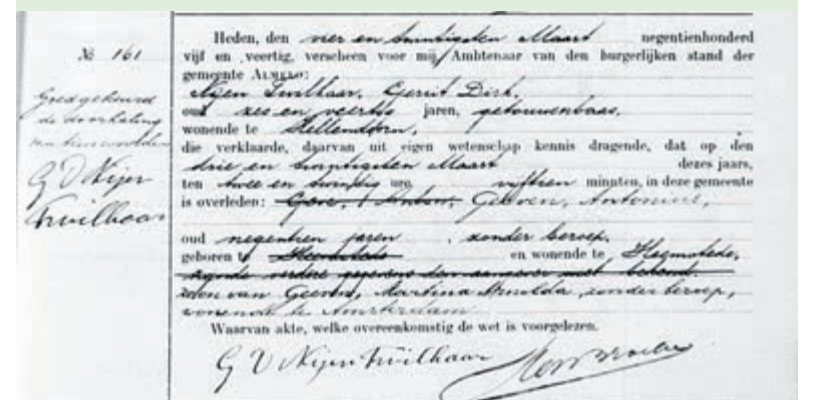 № 161
Goedgekeurd
de doorhaling
van tien woorden
G D Nijen
Twilhaar
Heden, den vier en twintigsten Maart negentienhonderd
vijf en veertig, verscheen voor mij, Ambtenaar van den burgerlijken stand der
gemeente ALMELO:
Nijen Twilhaar, Gerrit Dirk,
oud zes en veertig jaren, getouwenbaas,
wonende te Hellendoorn,
die verklaarde, daarvan uit eigen wetenschap kennis dragende, dat op den
drie en twintigsten Maart dezes jaars,
ten twee en twintig ure vijftien minuten, in deze gemeente
is overleden: Geeven, Antonius,
oud negentien jaren, zonder beroep,
geboren te Heemstede en wonende te Heemstede,
zijnde verdere gegevens den aangever niet bekend.
zoon van Geeven, Martina Arnolda, zonder beroep,
wonende te Amsterdam
Waarvan akte, welke overeenkomstig de wet is voorgelezen.
G D Nijen Twilhaar